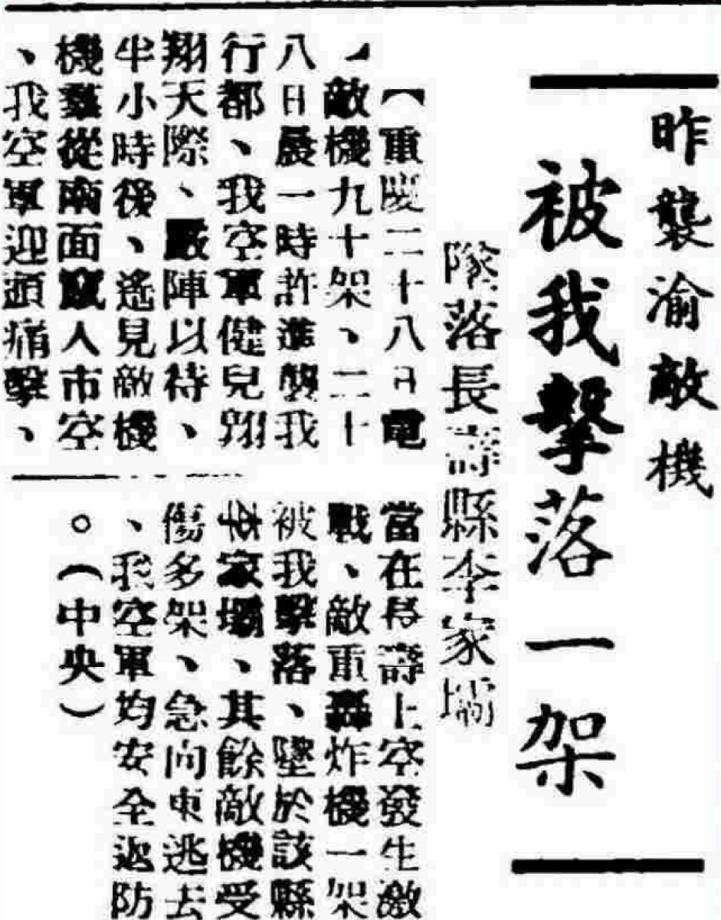 昨襲渝敵機
被我擊落一架
墜落長壽縣李家壩
（重慶二十八日電
）敵機九十架、二十
八日晨一時許進襲我
行都、我空軍健兒翱
翔天際、嚴陣以待、
半小時後、遙見敵機
機羣從兩面竄入市空
、我空軍迎頭痛擊、
當在長壽上空發生激
戰、敵重轟炸機一架
被我擊落、墜於該縣
家壩、其餘敵機受
傷多架、急向東逃去
、我空軍均安全返防
。（中央）